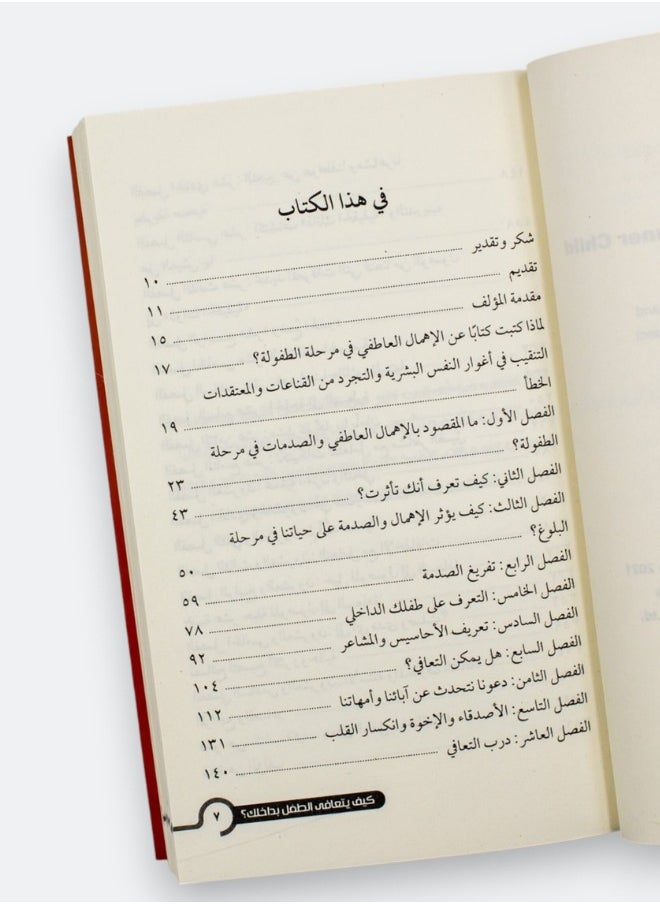 في هذا الكتاب
شكر وتقدير ........ ١٠
تقديم ........ ١١
مقدمة المؤلف ........ ١٥
لماذا كتبت كتابًا عن الإهمال العاطفي في مرحلة الطفولة؟ ........ ١٧
التنقيب في أغوار النفس البشرية والتجرد من القناعات والمعتقدات
الخطأ ........ ١٩
الفصل الأول: ما المقصود بالإهمال العاطفي والصدمات في مرحلة
الطفولة؟ ........ ٢٣
الفصل الثاني: كيف تعرف أنك تأثرت؟ ........ ٤٣
الفصل الثالث: كيف يؤثر الإهمال والصدمة على حياتنا في مرحلة
البلوغ؟ ........ ٥٠
الفصل الرابع: تفريغ الصدمة ........ ٥٩
الفصل الخامس: التعرف على طفلك الداخلي ........ ٧٨
الفصل السادس: تعريف الأحاسيس والمشاعر ........ ٩٢
الفصل السابع: هل يمكن التعافي؟ ........ ١٠٤
الفصل الثامن: دعونا نتحدث عن آبائنا وأمهاتنا ........ ١١٢
الفصل التاسع: الأصدقاء والإخوة وانكسار القلب ........ ١٣١
الفصل العاشر: درب التعافي ........ ١٤٠
كيف يتعافى الطفل بداخلك؟ ٧